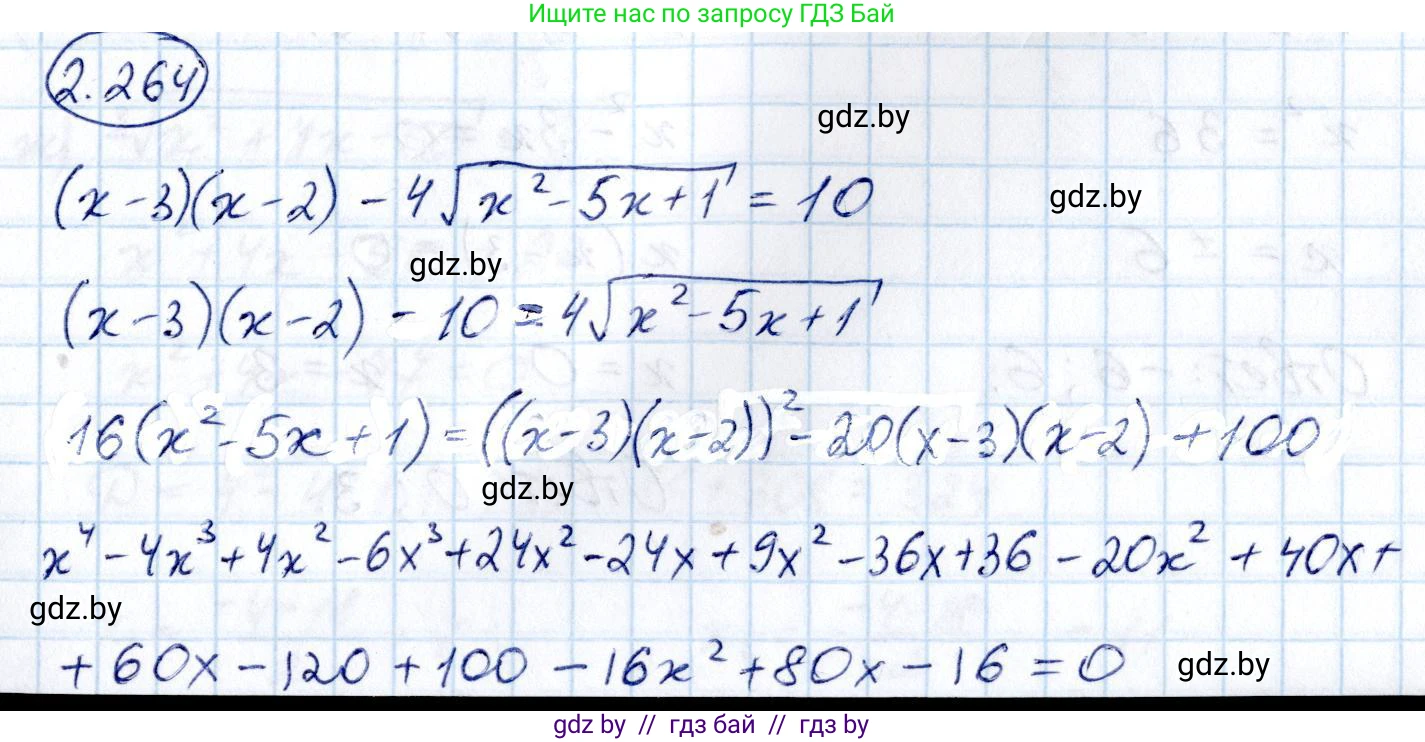 Ищите нас по запросу ГДЗ Бай
2.264
gdz.by
(x-3)(x-2) - 4√(x²-5x+1) = 10
gdz.by
gdz.by
(x-3)(x-2) - 10 = 4√(x²-5x+1)
16(x²-5x+1) = ((x-3)(x-2))² - 20(x-3)(x-2) + 100
gdz.by
x⁴ - 4x³ + 4x² - 6x³ + 24x² - 24x + 9x² - 36x + 36 - 20x² + 40x +
gdz.by
+ 60x - 120 + 100 - 16x² + 80x - 16 = 0
gdz.by
gdz by // гдз бай // гдз by